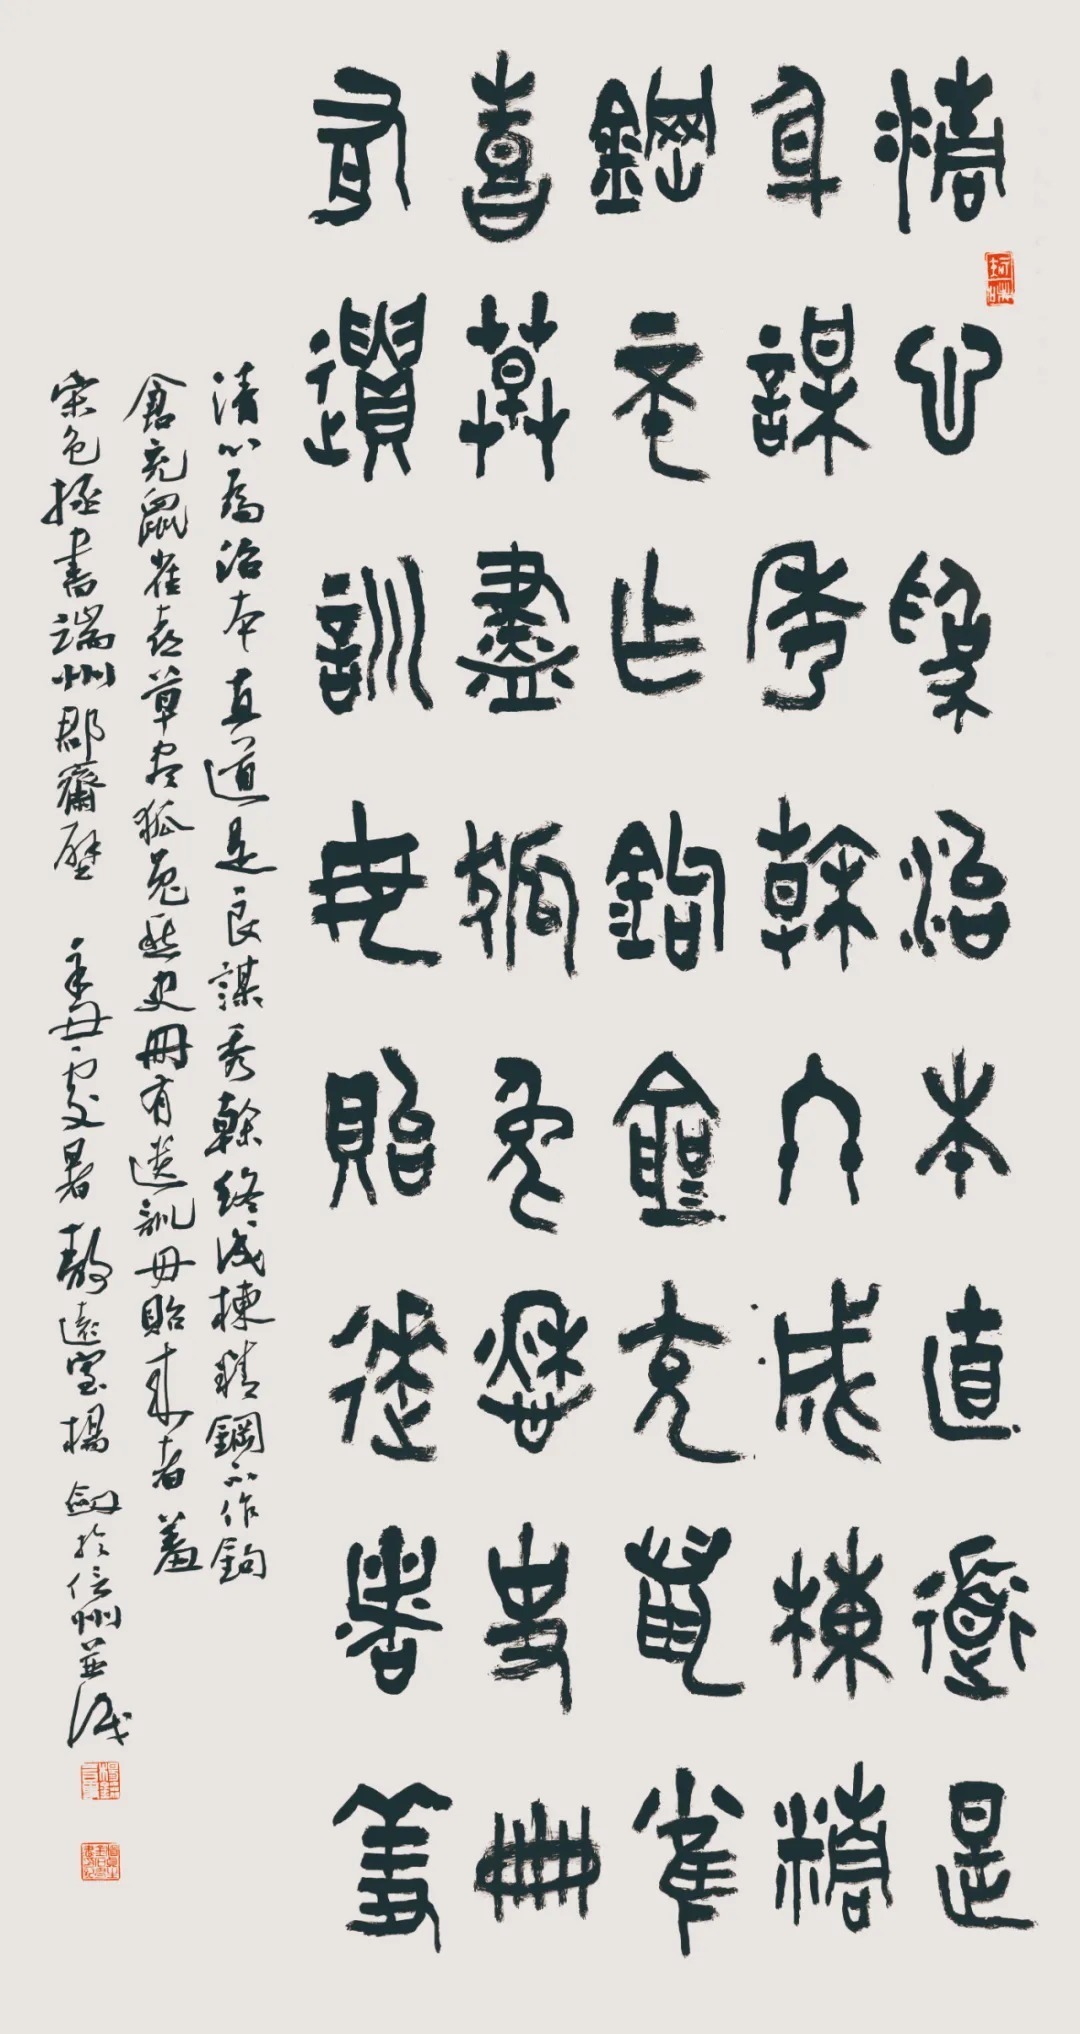 清心為治本直道是
良謀秀幹終成棟精
鋼不作鉤倉充鼠雀
喜草盡狐兔愁史冊
有遺訓毋貽來者羞
清心為治本直道是良謀秀幹終成棟精鋼不作鉤
倉充鼠雀喜草尽狐兔愁史冊有遺訓毋貽來者羞
宋包拯書端州郡齋壁 辛丑處暑 遠室楊劍於信州並識